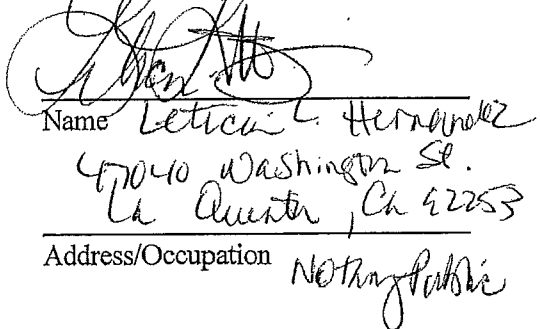 Name Leticia L. Hernandez
47040 Washington St.
La Quinta, Ca 92253
Address/Occupation Notary Public